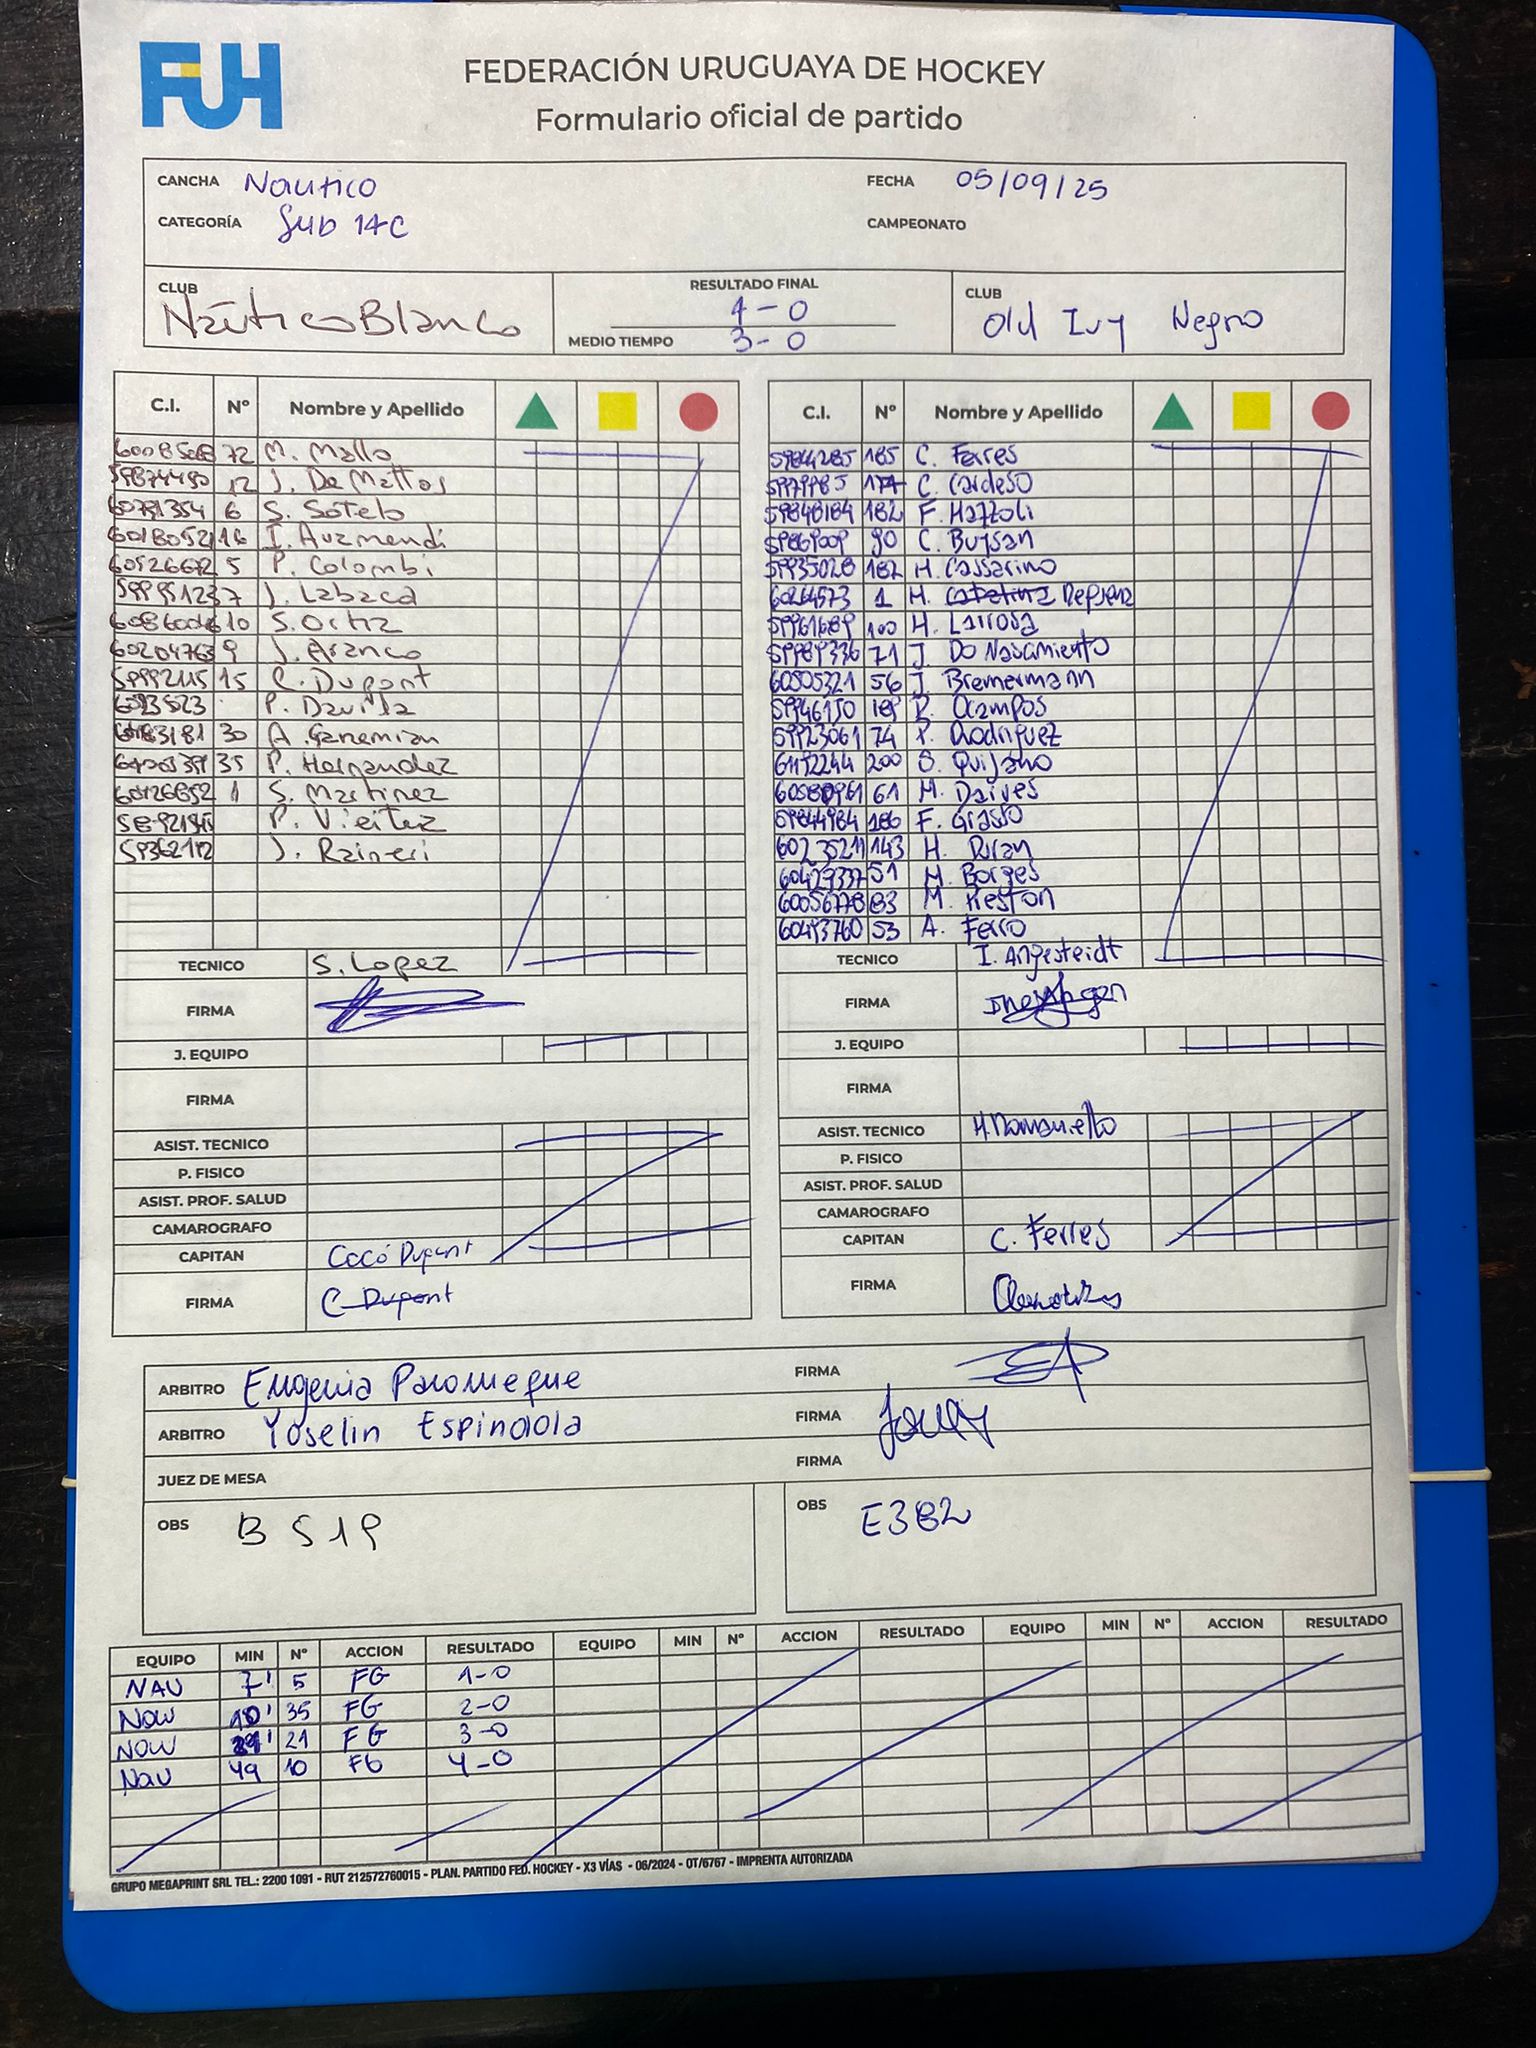 FUH
FEDERACIÓN URUGUAYA DE HOCKEY
Formulario oficial de partido
CANCHA Nautico FECHA 05/09/25
CATEGORÍA Sub 14C CAMPEONATO
CLUB NáuticoBlanco RESULTADO FINAL 4-0 CLUB Old Ivy Negro
MEDIO TIEMPO 3-0
C.I. Nº Nombre y Apellido C.I. Nº Nombre y Apellido
72 M. Mallo 59844285 185 C. Ferres
12 J. De Mattos C. Cardeso
6 S. Sotelo 59848184 182 F. Mazzoli
16 I. Auzmendi 90 C. Buysan
5 P. Colombi 59935028 182 M. Cassarino
7 J. Labaca 60264573 1 M. Defrena
10 S. Ortiz 59961689 100 M. Larrosa
60204763 9 J. Aranco 59989336 71 J. Do Nascimiento
15 C. Dupont 60505321 56 J. Bremermann
P. Davila 59946150 189 Ocampos
30 A. Ganemian 59923061 74 P. Rodriguez
35 P. Hernandez 61192244 200 S. Quijano
60126852 1 S. Martinez 61 M. Daives
P. Vieitez 59844984 186 F. Grasso
J. Raineri 60235211 143 M. Duran
60429337 51 M. Borges
60056778 83 M. Keston
60493760 53 A. Ferro
TECNICO S. Lopez TECNICO I. Angesteidt
FIRMA FIRMA
J. EQUIPO J. EQUIPO
FIRMA FIRMA
ASIST. TECNICO ASIST. TECNICO
P. FISICO P. FISICO
ASIST. PROF. SALUD ASIST. PROF. SALUD
CAMAROGRAFO CAMAROGRAFO
CAPITAN Cocó Dupont CAPITAN C. Ferres
FIRMA C Dupont FIRMA
ARBITRO Eugenia Paromeque FIRMA
ARBITRO Yoselin Espindola FIRMA
JUEZ DE MESA FIRMA
OBS B S19 OBS E382
EQUIPO MIN Nº ACCION RESULTADO EQUIPO MIN Nº ACCION RESULTADO EQUIPO MIN Nº ACCION RESULTADO
NAU 7' 5 FG 1-0
NAU 10' 35 FG 2-0
NAU 21 FG 3-0
NAU 49 10 FG 4-0
GRUPO MEGAPRINT SRL TEL.: 2200 1091 - RUT 212572760015 - PLAN. PARTIDO FED. HOCKEY - X3 VÍAS - 06/2024 - OT/6767 - IMPRENTA AUTORIZADA